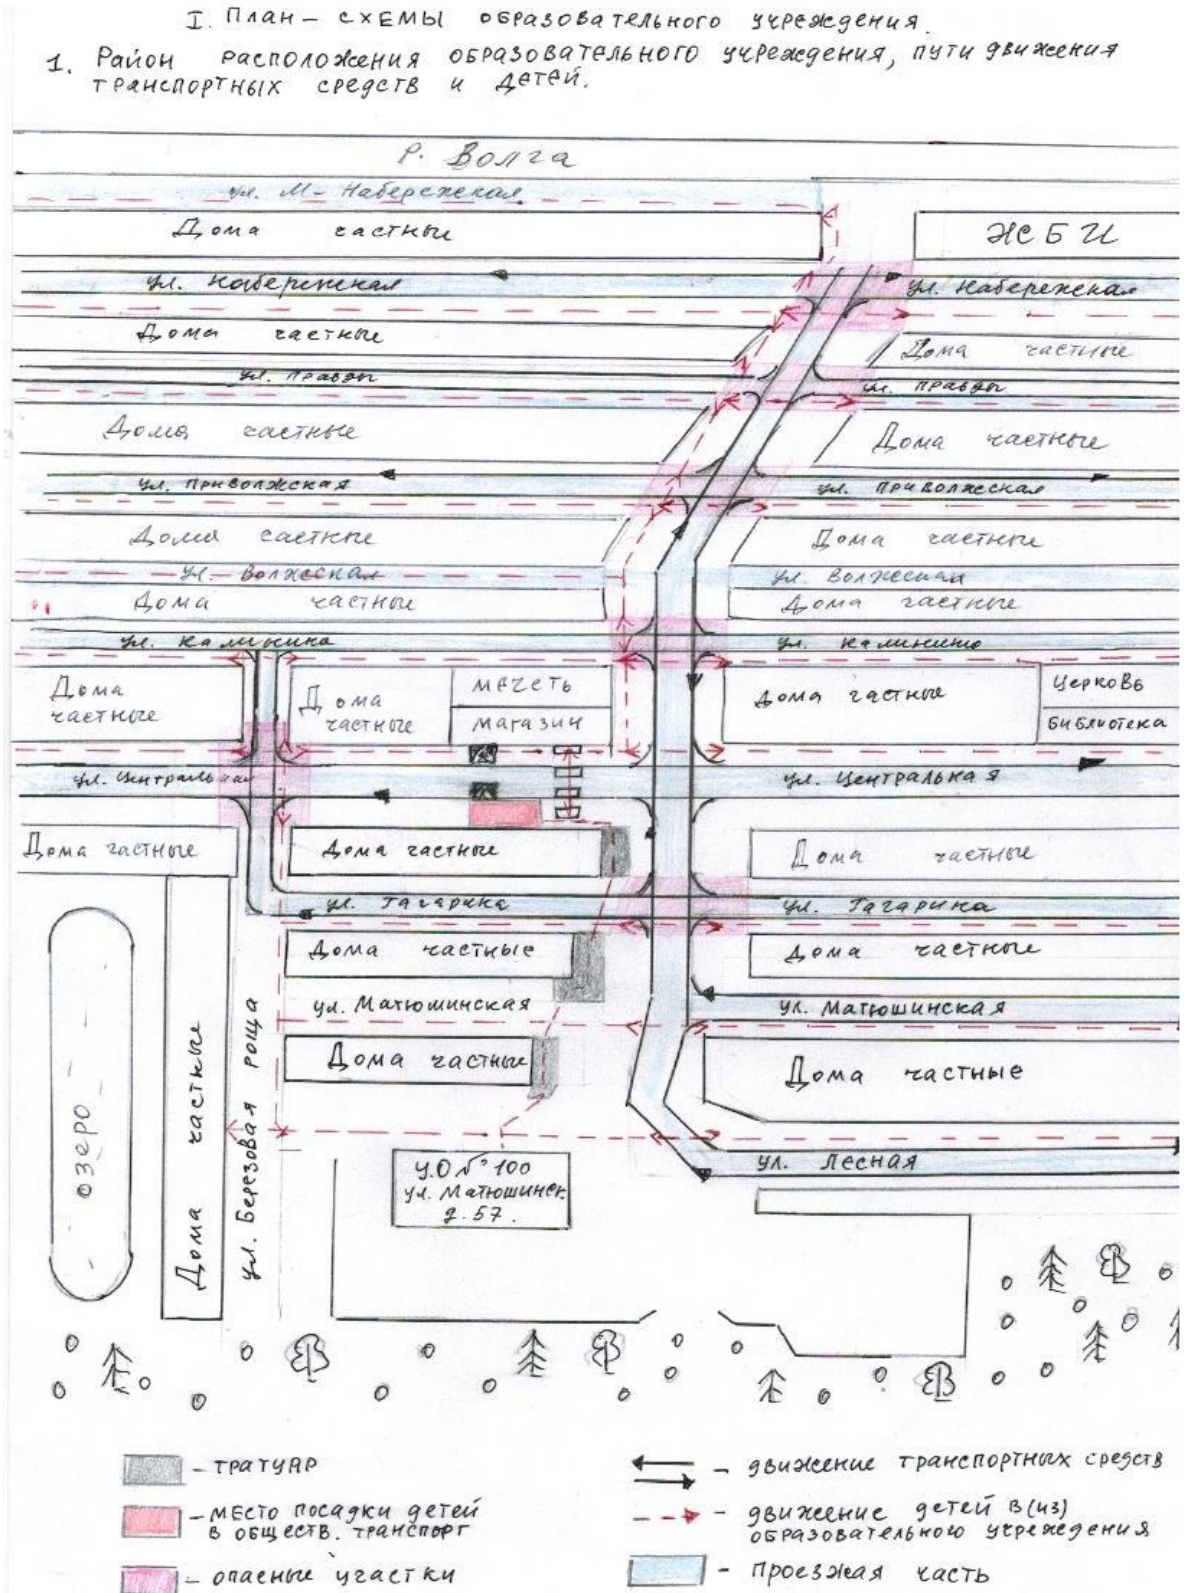 I. План – схемы образовательного учреждения.
1. Район расположения образовательного учреждения, пути движения
транспортных средств и детей.
р. Волга
ул. М- Набережная
Дома частные
ЖБИ
ул. Набережная
ул. Набережная
Дома частные
Дома частные
ул. Правды
ул. Правды
Дома частные
Дома частные
ул. Приволжская
ул. Приволжская
Дома частные
Дома частные
ул. Волжская
ул. Волжская
Дома частные
Дома частные
ул. Калинина
ул. Калинина
Дома
частные
Дома
частные
мечеть
магазин
Дома частные
церковь
библиотека
ул. Центральная
ул. Центральная
Дома частные
Дома частные
Дома частные
ул. Гагарина
ул. Гагарина
Дома частные
Дома частные
ул. Матюшинская
ул. Матюшинская
Дома частные
Дома частные
озеро
Дома частные
ул. Березовая роща
ул. Лесная
У.О № 100
ул. Матюшинск
д. 57.
- тратуар
- место посадки детей
в обществ. транспорт
- опасные участки
- движение транспортных средств
- движение детей в(из)
образовательного учреждения
- проезжая часть